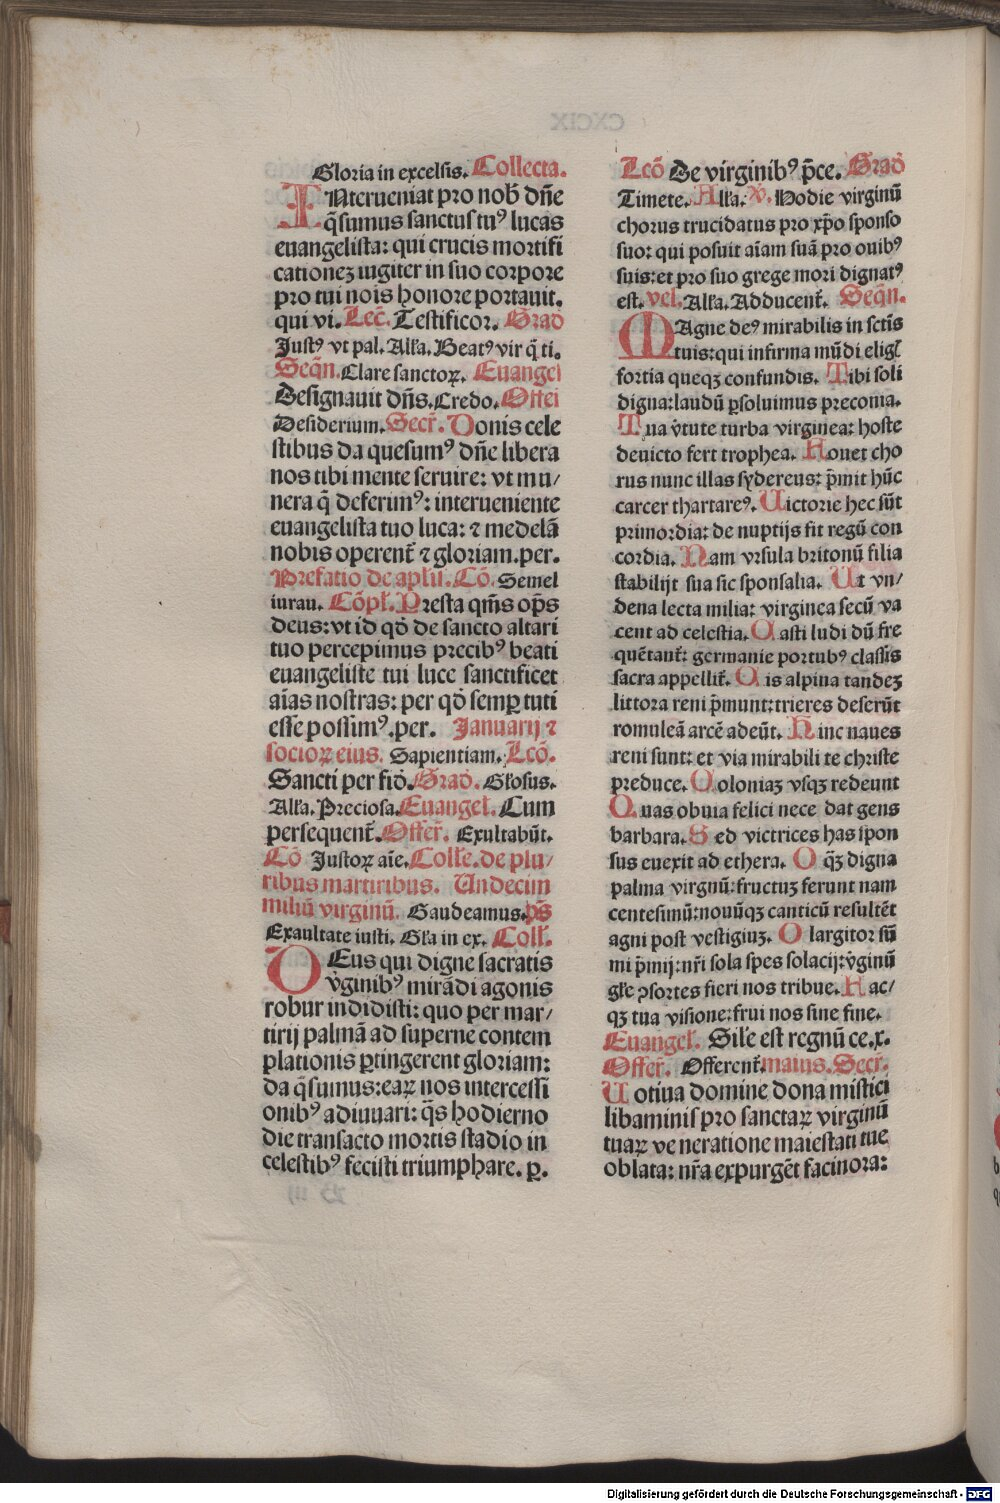 Gloria in excelsis. Collecta.
INterueniat pro nob̄ dn̄e
q̄sumus sanctus tuꝰ lucas
euangelista: qui crucis mortifi
cationeʒ iugiter in suo corpore
pro tui nois honore portauit.
qui vi. Lec̄. Testificor. Grad̄
Justꝰ vt pal. Alła. Beatꝰ vir q̄ ti.
Seq̄n. Clare sanctoꝝ. Euangel
Designauit dn̄s. Credo. Offei
Desiderium. Secr̄. Donis cele
stibus da quesumꝰ dn̄e libera
nos tibi mente seruire: vt mu/
nera q̄ deferimꝰ: interueniente
euangelista tuo luca: ⁊ medelā
nobis operent̄ ⁊ gloriam. per.
Prefatio de apłi. Cō. Semel
iurau. Cōpł. Presta qm̄s op̄s
deus: vt id qd̄ de sancto altari
tuo percepimus precibꝰ beati
euangeliste tui luce sanctificet
aīas nostras: per qd̄ semꝑ tuti
esse possimꝰ. per. Januarij ⁊
socioꝝ eius. Sapientiam. Lcō.
Sancti per fid̄. Grad̄. Głosus.
Alła. Preciosa. Euangeł. Cum
persequent̄. Offer̄. Exultabūt.
Cō Justoꝝ aīe. Colłe. de plu/
ribus martiribus. Undecim
miliū virginū. Gaudeamus. ps̄
Exaultate iusti. Gła in ex. Colł.
DEus qui digne sacratis
v̄ginibꝰ mirādi agonis
robur indidisti: quo per mar/
tirij palmā ad superne contem
plationis ꝑtingerent gloriam:
da q̄sumus: eaꝝ nos intercessi
onibꝰ adiuuari: q̄s hodierno
die transacto mortis stadio in
celestibꝰ fecisti triumphare. ꝑ.
Lcō De virginibꝰ p̄ce. Grad̄
Timete. Alła. V̄. Hodie virginū
chorus trucidatus pro xp̄o sponso
suo: qui posuit aīam suā pro ouibꝰ
suis: et pro suo grege mori dignatꝰ
est. vel. Alła. Adducent̄. Seq̄n.
MAgne deꝰ mirabilis in sctīs
tuis: qui infirma mūdi eligł
fortia queqʒ confundis. Tibi soli
digna: laudū ꝑsoluimus preconia.
Tua v̄tute turba virginea: hoste
deuicto fert trophea. Houet cho
rus nunc illas sydereus: p̄mit hūc
carcer thartareꝰ. Uictorie hec sūt
primordia: de nuptijs fit regū con
cordia. Nam vrsula britonū filia
stabilijt sua sic sponsalia. Ut vn/
dena lecta milia: virginea secū va
cent ad celestia. Casti ludi dū fre
quētant̄: germanie portubꝰ classis
sacra appellit̄. Cis alpina tandeʒ
littora reni p̄munt: trieres deserūt
romuleā arcē adeūt. Hinc naues
reni sunt: et via mirabili te christe
preduce. Coloniaʒ vsqʒ redeunt
Quas obuia felici nece dat gens
barbara. Sed victrices has spon
sus euexit ad ethera. O q̄ʒ digna
palma virgnū: fructuʒ ferunt nam
centesimū: nouūqʒ canticū resultēt
agni post vestigiuʒ. O largitor sū
mi p̄mij: nr̄i sola spes solacij: v̄ginū
głe ꝯsortes fieri nos tribue. Hac/
qʒ tua visione: frui nos sine fine.
Euangeł. Siłe est regnū ce. x.
Offer̄. Offerent̄. maius. Secr̄.
Uotiua domine dona mistici
libaminis pro sanctaꝝ virginū
tuaꝝ ve neratione maiestati tue
oblata: nr̄a expurgēt facinora: